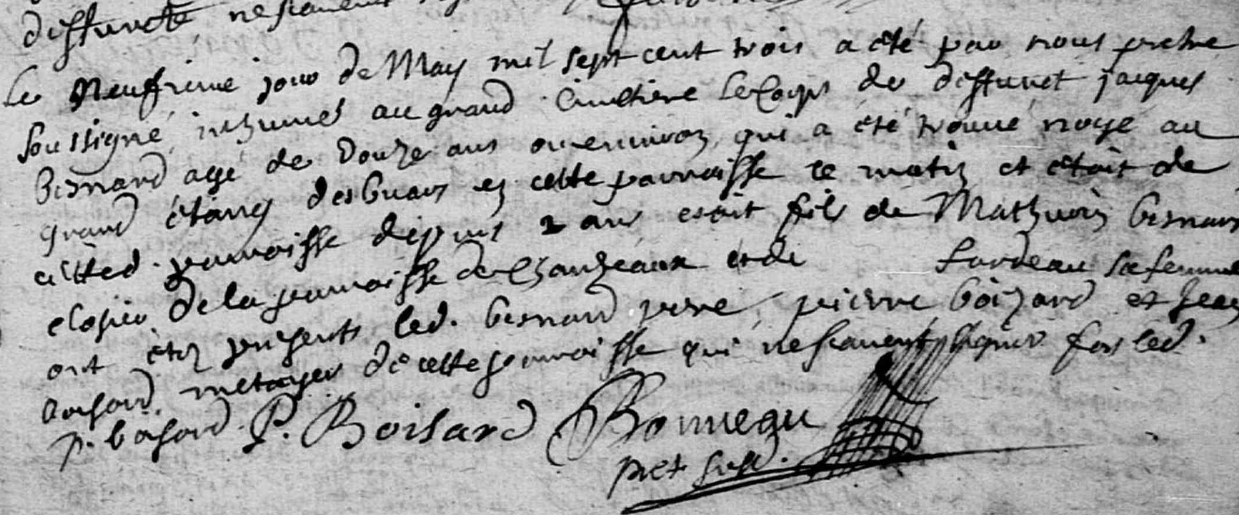 deffuncte, ne scavent
Le Neufvieme jour de May mil sept cent trois a eté par nous pretre
soussigné, inhumé au grand Cimetiere le Corps de deffunct jacques
besnard agé de douze ans ou environ qui a été trouvé noyé au
grand étang des buars en cette parroisse ce matin et etoit de
cetted. parroisse depuis 2 ans estoit fils de Mathurin besnard
closier de la parroisse de Chanzeaux et de fardeau sa femme
ont étez presents led. besnard pere, pierre boisard et Jean
boisard métayer de cette parroisse qui ne scavent signer fors led.
p. boisard. P. Boisard Bonneau
pret susd.